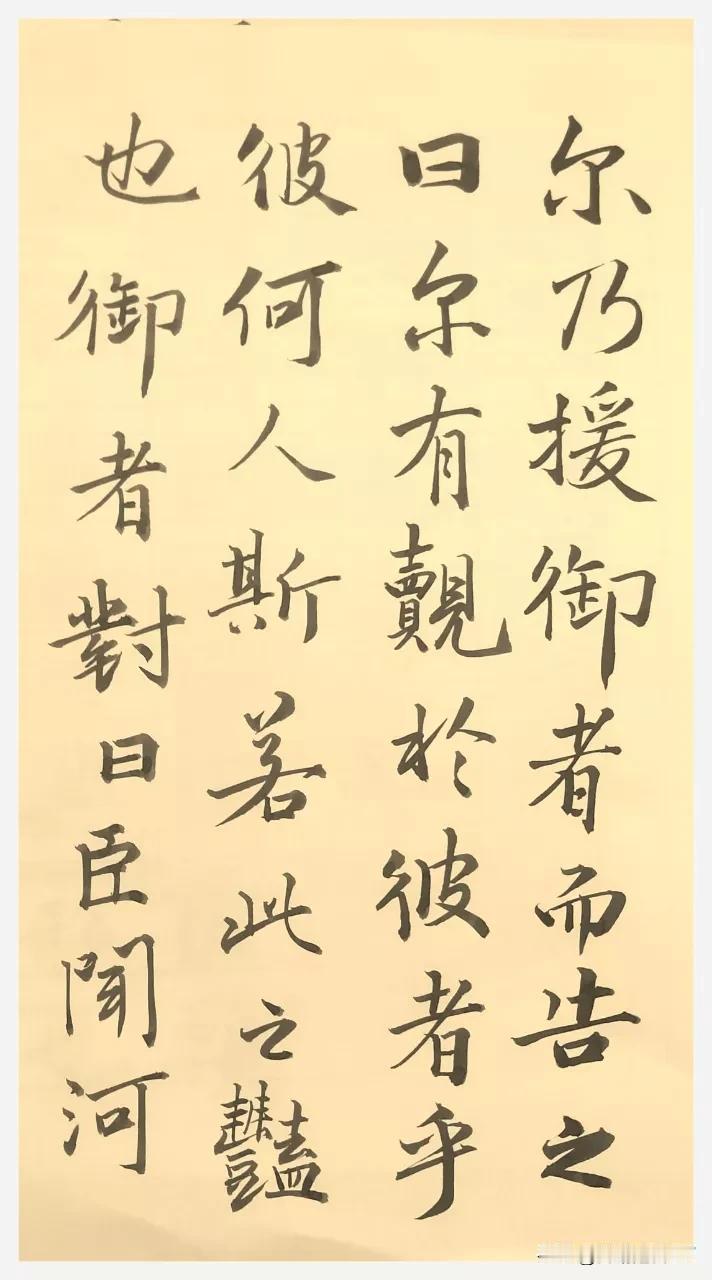 尔乃援御者而告之
曰尔有觌於彼者乎
彼何人斯若此之豔
也御者對曰臣聞河